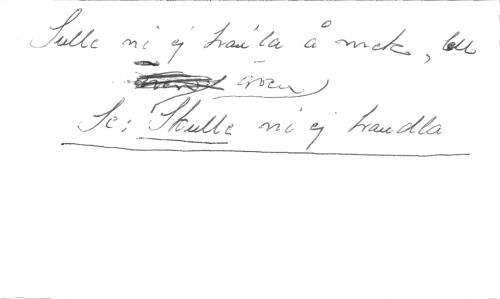 Sulle ni ej han'la å nick,
även
Se: Skulle ni ej handla